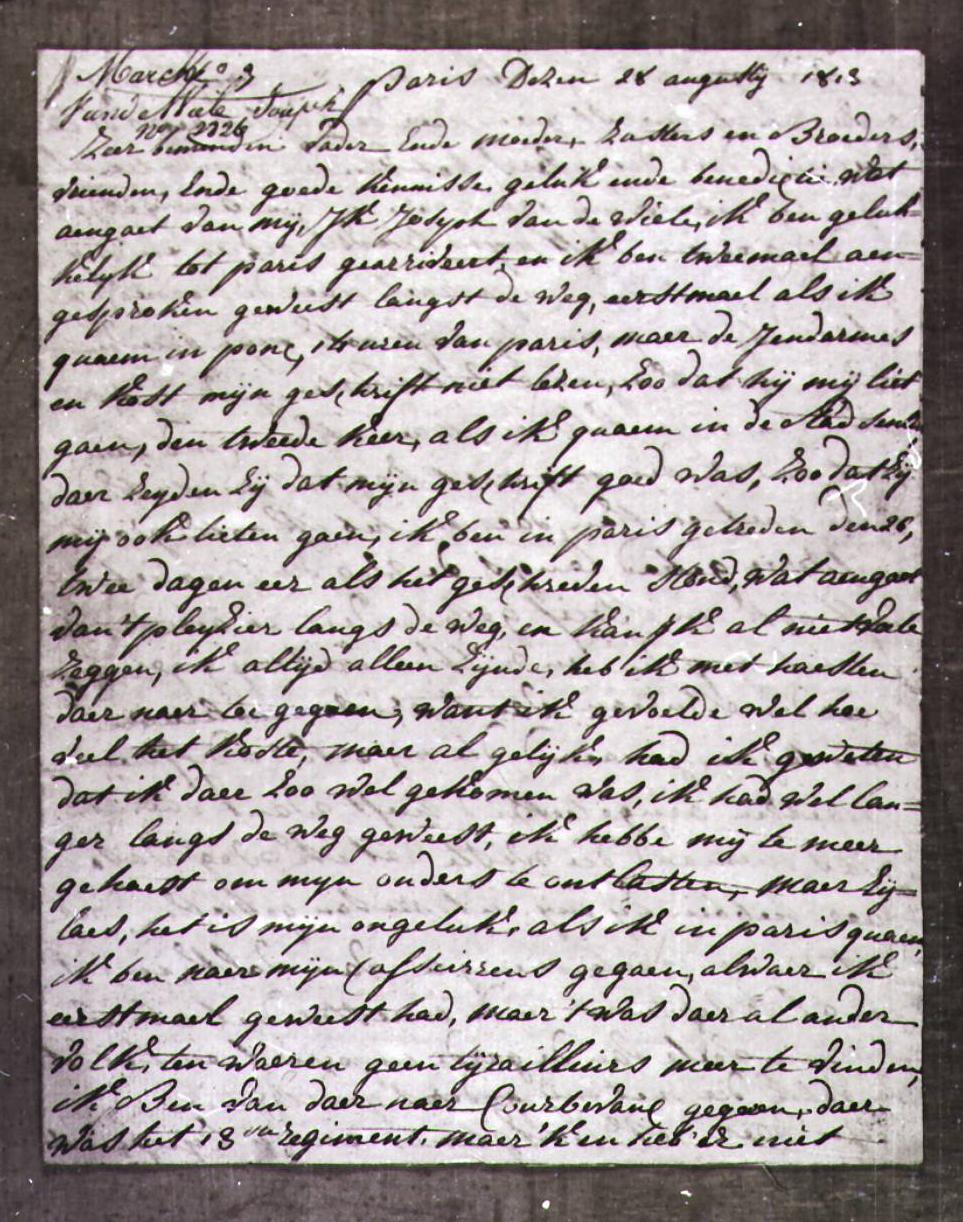 Marck n° 3 Paris Dezen 28 augusty 1813
Vand Wiele Joseph
n° 2326
Zeer beminden Vader Ende moeder, Zusters en Broeders,
vrienden, Ende goede kennisse, geluk ende benedictie wat
aengaet van mij, Jk Joseph van de Wiele, ik ben geluk=
kelyk tot paris gearriveert, en ik ben tweemael aen=
gesproken geweest langst de weg, eerstmael als ik
quaem in pone, uren van paris, maer de Jendarmes
en kost mijn geschrift niet lezen, zoo dat hij mij liet
gaen, den tweede keer, als ik quaem in de stad
daer zeyden zij dat mijn geschrift goed was, zoo dat zij
mij ook lieten gaen, ik ben in paris getreden den 26,
twee dagen eer als het geschreven stond, wat aengaet
van 't pleyzier langs de weg, en kan Jk al niet vele
zeggen, ik altijd alleen zijnde, heb ik met haesten
daer naer toe gegaen, want ik gevoelde wel hoe
veel het koste, maer al gelijk, had ik geweten
dat ik daer zoo wel gekomen was, ik had wel lan=
ger langs de weg geweest, ik hebbe mij te meer
gehaest om mijn ouders te ontlasten, maer Eij=
laes, het is mijn ongeluk, als ik in paris quaem
ik ben naer mijn Casseirrens gegaen, alwaer ik
eerstmael geweest had, maer 't was daer al ander
volk, ten waeren geen tijrailliurs meer te vinden,
ik Ben van daer naer Courbevane gegaen, daer
was het 13 regiment, maer 'k en heb er niet